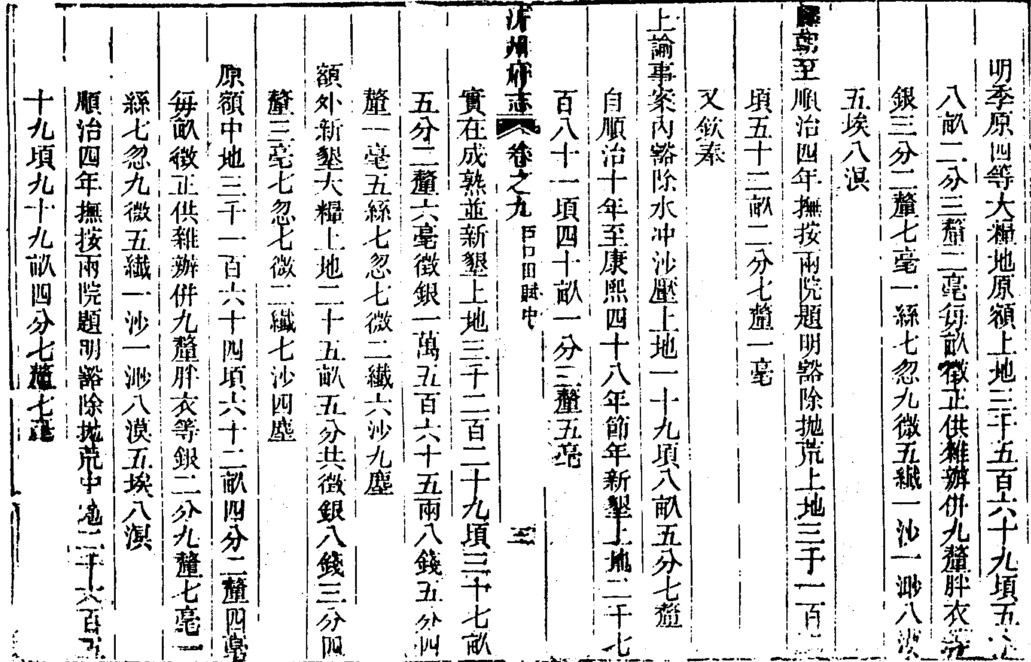 明季原四等大糧地原額上地三千五百六十九頃五十
八畝二分三釐二毫每畝徵正供雜辦併九釐胖衣等
銀三分二釐七毫一絲七忽九微五纖一沙一渺八漠
五埃八溟
國朝至順治四年撫按兩院題明豁除拋荒上地三千一百
頃五十二畝二分七釐一毫
又欽奉
上諭事案內豁除水冲沙壓上地一十九頃八畝五分七釐
自順治十年至康熙四十八年節年新墾上地二千七
百八十一頃四十畝一分三釐五毫
沂州府志 卷之九 田賦中 三
實在成熟並新墾上地三千二百二十九頃三十七畝
五分二釐六毫徵銀一萬五百六十五兩八錢五分四
釐一毫五絲七忽七微二纖六沙九塵
額外新墾大糧上地二十五畝五分共徵銀八錢三分四
釐三毫七忽七微二纖七沙四塵
原額中地三千一百六十四頃六十二畝四分二釐四毫
每畝徵正供雜辦併九釐胖衣等銀二分九釐七毫一
絲七忽九微五纖一沙一渺八漠五埃八溟
順治四年撫按兩院題明豁除拋荒中地二千六百五
十九頃九十九畝四分七釐七毫